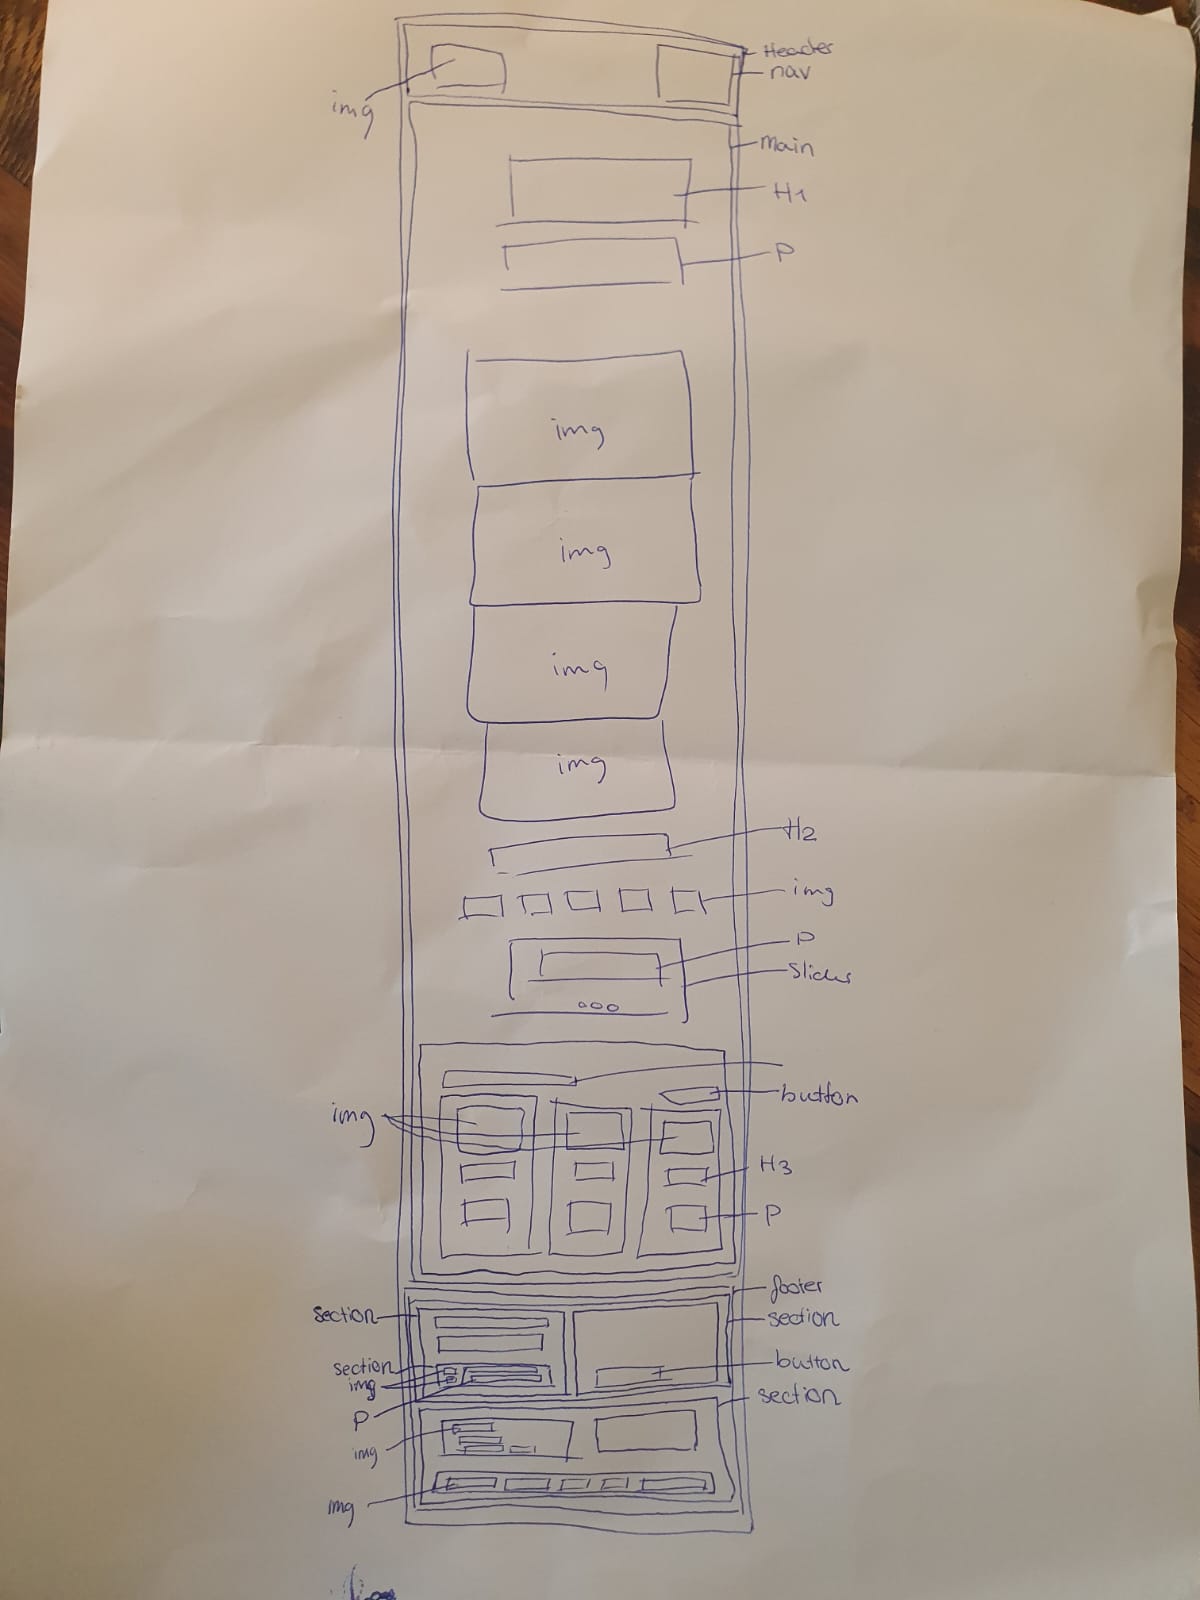 Header
nav
img
main
H1
P
img
img
img
img
H2
img
P
Slider
button
img
H3
P
footer
section
section
section
img
button
P
section
img
img